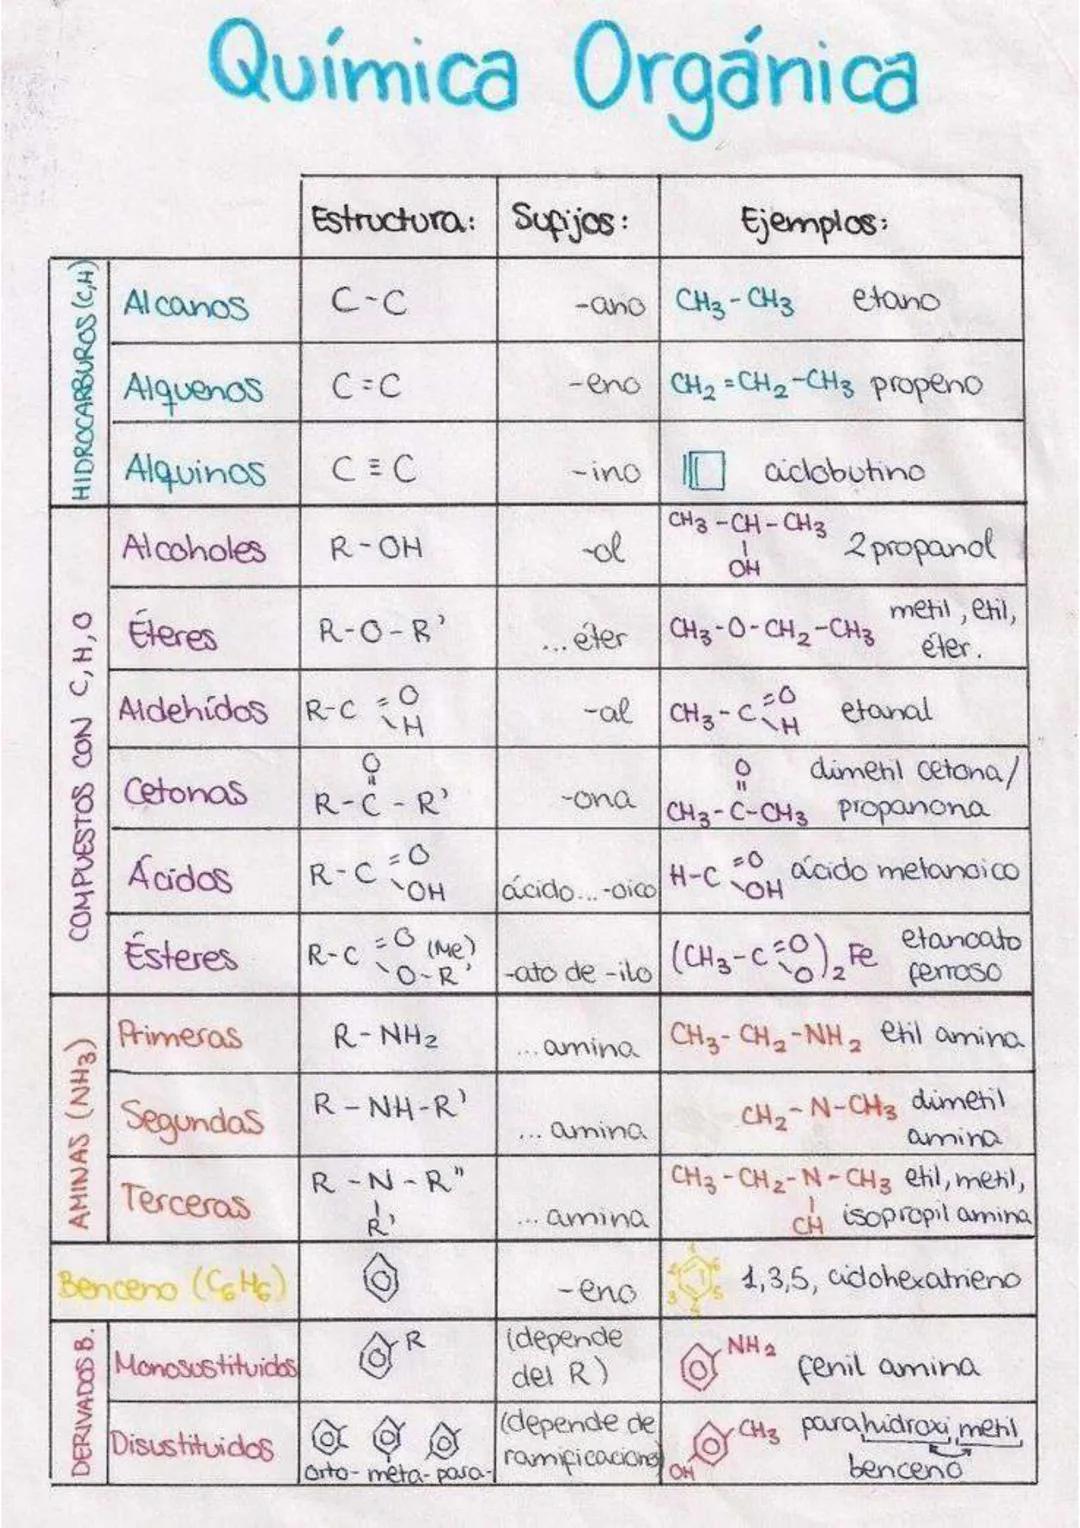 Química Orgánica
Estructura: Sufijos: Ejemplos:
HIDROCARBUROS (C,H)
Alcanos C-C -ano CH3-CH3 etano
Alquenos C=C -eno CH2=CH2-CH3 propeno
Alquinos C≡C -ino ciclobutino
COMPUESTOS CON C, H, O
Alcoholes R-OH -ol CH3-CH-CH3 2 propanol
OH
Éteres R-O-R' ...éter CH3-O-CH2-CH3 metil, etil,
éter.
Aldehídos R-C =O -al CH3-C =O etanal
H H
Cetonas O -ona O dimetil cetona/
R-C-R' CH3-C-CH3 propanona
Ácidos R-C =O ácido...-oico H-C =O ácido metanoico
OH OH
Ésteres R-C =O (Me) -ato de -ilo (CH3-C =O)2 Fe etanoato
O-R' O ferroso
AMINAS (NH3)
Primeras R-NH2 ...amina CH3-CH2-NH2 etil amina
Segundas R-NH-R' ...amina CH2-N-CH3 dimetil
amina
Terceras R-N-R" ...amina CH3-CH2-N-CH3 etil, metil,
R' CH isopropil amina
Benceno (C6H6) -eno 1,3,5, ciclohexatrieno
DERIVADOS B.
Monosustituidos R (depende NH2 fenil amina
del R)
Disustituidos (depende de CH3 parahidroxi, metil
orto- meta- para- ramificaciones) OH benceno